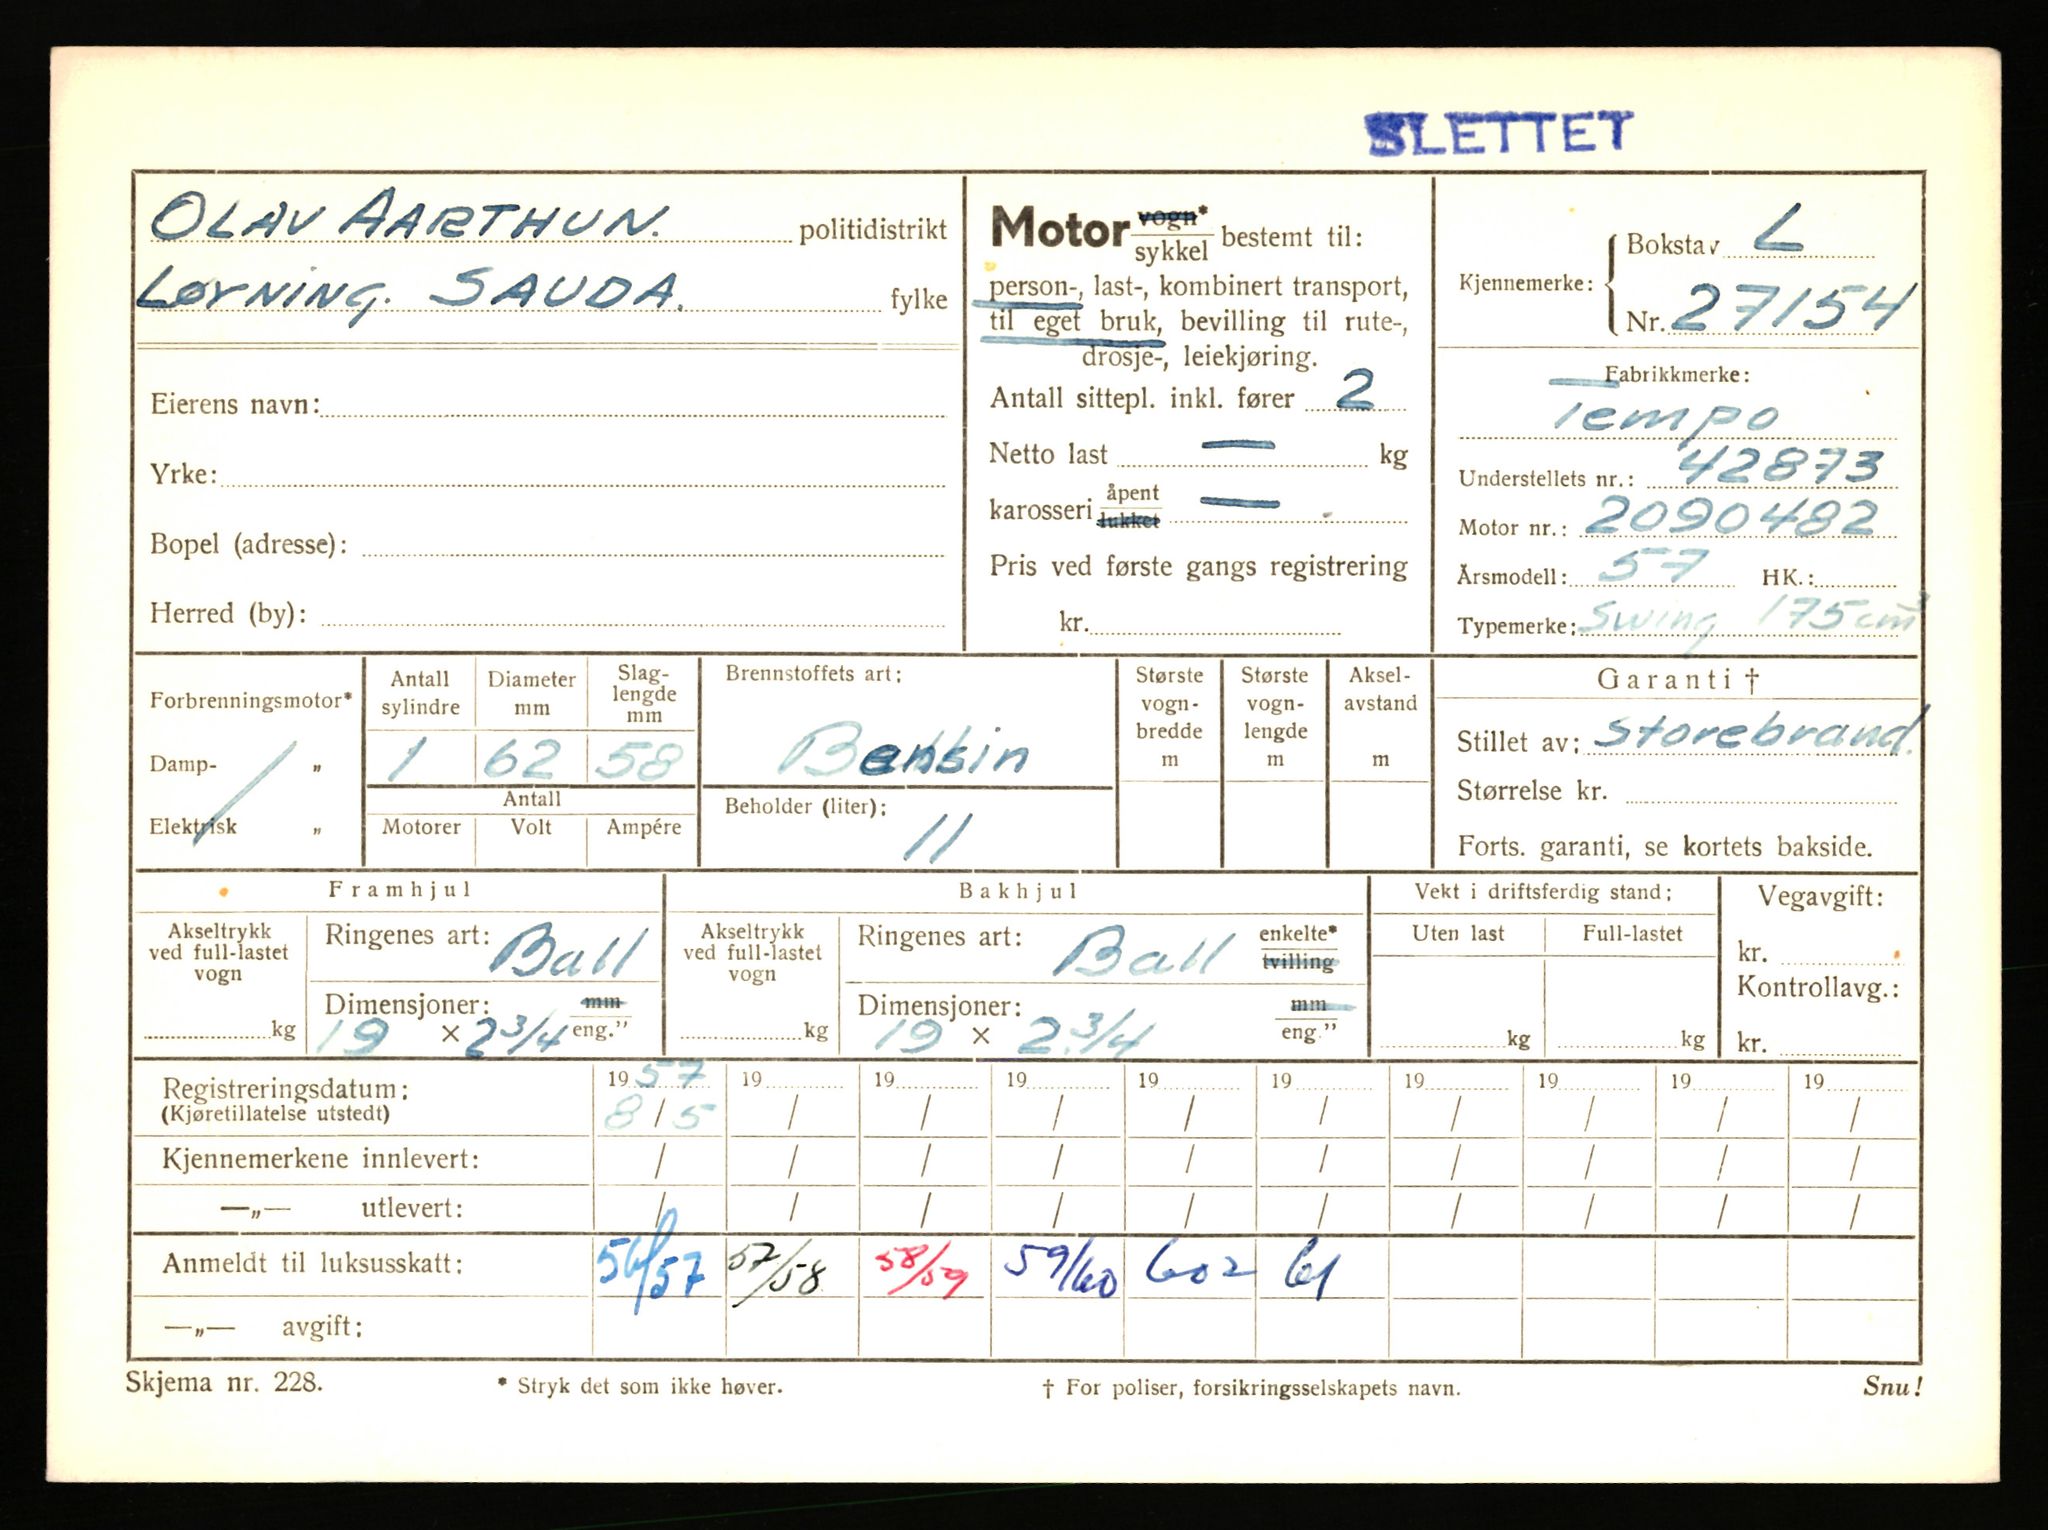 SLETTET
OLAV AARTHUN. politidistrikt
LØYNING. SAUDA. fylke
Eierens navn:
Yrke:
Bopel (adresse):
Herred (by):
Motor vogn* / sykkel bestemt til:
person-, last-, kombinert transport,
til eget bruk, bevilling til rute-,
drosje-, leiekjøring.
Antall sittepl. inkl. fører 2
Netto last — kg
karosseri åpent / lukket —
Pris ved første gangs registrering
kr.
Kjennemerke: Bokstav L
Nr. 27154
Fabrikkmerke:
Tempo
Understellets nr.: 42873
Motor nr.: 2090482
Årsmodell: 57 HK.:
Typemerke: Swing 175 cm³
Forbrenningsmotor*
Damp- „
Elektrisk „
Antall sylindre Diameter mm Slag-lengde mm
1 62 58
Antall
Motorer Volt Ampére
Brennstoffets art:
Bensin
Beholder (liter):
11
Største vogn-bredde m
Største vogn-lengde m
Aksel-avstand m
Garanti †
Stillet av: Storebrand.
Størrelse kr.
Forts. garanti, se kortets bakside.
Framhjul
Akseltrykk ved full-lastet vogn
kg
Ringenes art: Ball
Dimensjoner: mm / eng.”
19 × 2 3/4
Bakhjul
Akseltrykk ved full-lastet vogn
kg
Ringenes art: Ball enkelte* / tvilling
Dimensjoner: mm / eng.”
19 × 2 3/4
Vekt i driftsferdig stand:
Uten last Full-lastet
kg kg
Vegavgift:
kr.
Kontrollavg.:
kr.
Registreringsdatum: 1957 19 19 19 19 19 19 19 19 19
(Kjøretillatelse utstedt) 8/5 / / / / / / / / /
Kjennemerkene innlevert: / / / / / / / / / /
—„— utlevert: / / / / / / / / / /
Anmeldt til luksusskatt: 56/57 57/58 58/59 59/60 602 61
—„— avgift:
Skjema nr. 228. * Stryk det som ikke høver. † For poliser, forsikringsselskapets navn. Snu!